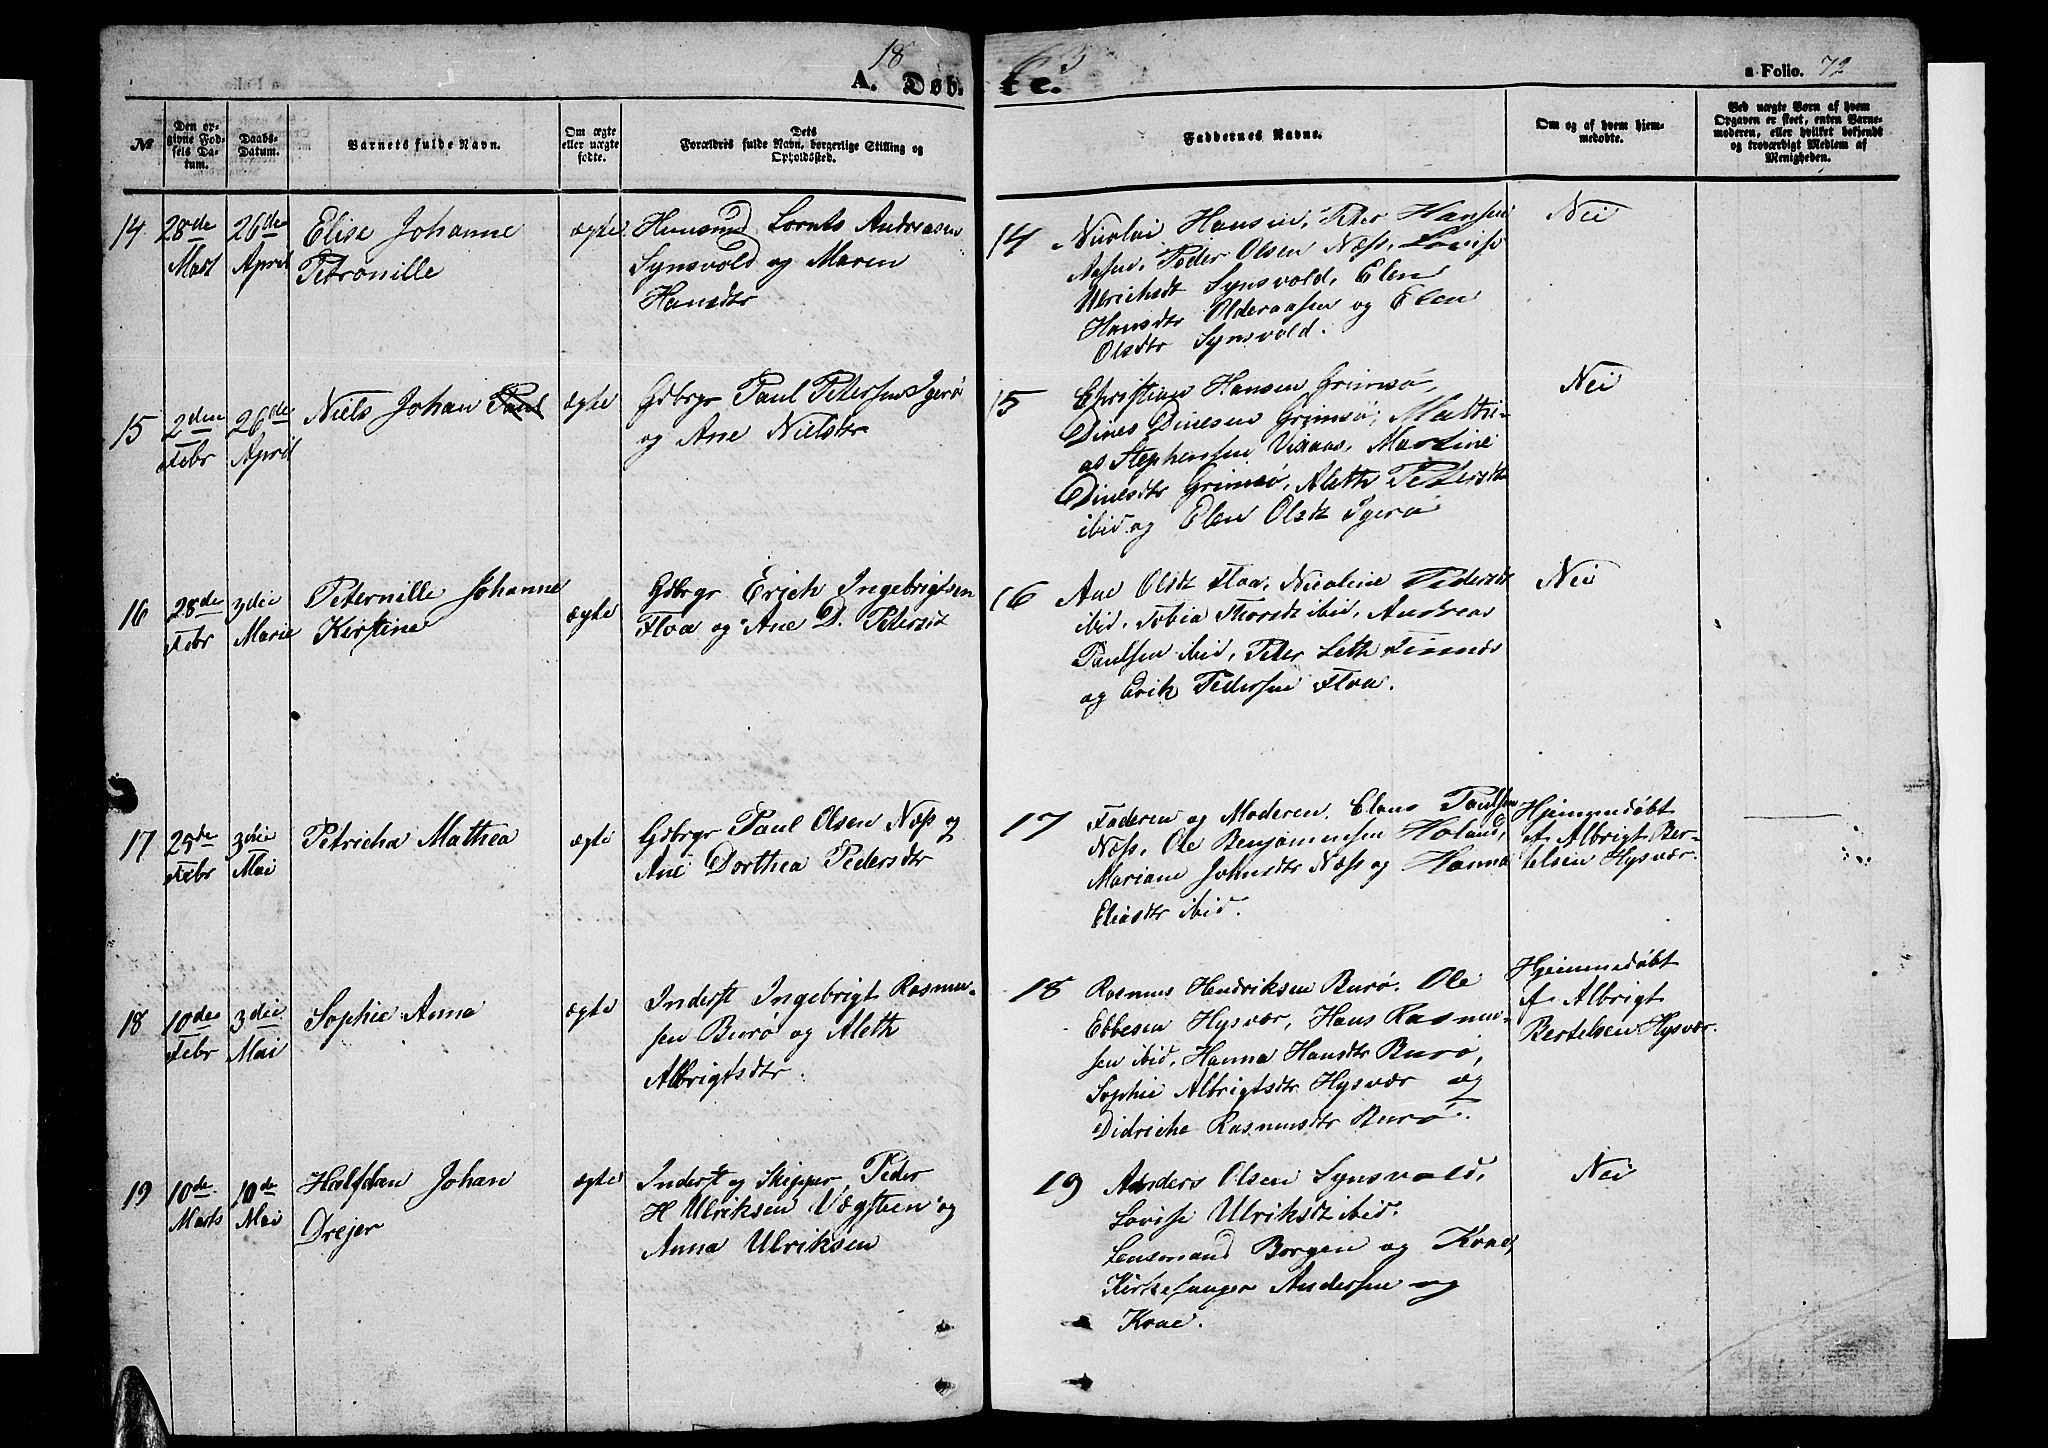 18 63
A. Døbte.
a Folio. 72
No
Den opgivne Fødsels Datum.
Daabs-Datum.
Barnets fulde Navn.
Om ægte eller uægte fødte.
Dets Forældris fulde Navn, borgerlige Stilling og Opholdssted.
Faddernes Navne.
Om og af hvem hjemmedøbte.
Ved uægte Børn af hvem Opgaven er skeet, enten Barnemoderen, eller hvilket bekjendt og troværdigt Medlem af Menigheden.
14
28de Marts
26de April
Elise Johanne
Petronille
ægte
Huusmd Lornts Andreasen
Synsvold og Maren
Hansdtr
14
Nicolai Hansen, Peter Hansen
Aasen, Peder Olsen Næss, Lovise
Ulrichsdt Synsvold, Elen
Hansdtr Olderaasen og Elen
Olsdtr Synsvold.
Nei
15
2den Febr
26de April
Niels Johan Paul
ægte
Gdbrgr Paul Petersen Igerø
og Ane Nielsdtr
15
Christian Hansen Grimsø,
Dines Dinesen Grimsø, Mathi-
as Stephensen Vixaas, Martine
Dinesdtr Grimsø, Aleth Petersdtr
ibid og Elen Olsdtr Igerø
Nei
16
28de Febr
3die Maie
Peternille Johanne
Kirstine
ægte
Gdbrgr Erich Ingebrigtsen
Floa og Ane D. Petersdt
16
Ane Olsdt Floa, Nicoline Pedersdt
ibid, Tobia Thorsdt ibid, Andreas
Paulsen ibid, Peter Leth Tinnæs
og Erik Pedersen Floa.
Nei
17
29de Febr
3die Mai
Petricha Mathea
ægte
Gdbrgr Paul Olsen Næss og
Ane Dorthea Pedersdtr
17
Faderen og Moderen, Elans Paulsen
Næss, Ole Benjaminsen Holand,
Mariane Johnsdtr Næss og Hanna
Eliasdtr ibid.
Hjemmedøbt
af Albrigt Ber-
telsen Hysvær.
18
10de Febr
3die Mai
Sophie Anna
ægte
Inderst Ingebrigt Rasmu-
sen Burø og Aleth
Albrigtsdtr.
18
Rasmus Hendriksen Burø, Ole
Ebbesen Hysvær, Hans Rasmu-
sen ibid, Hanna Hansdtr Burø,
Sophie Albrigtsdtr Hysvær og
Didriche Rasmusdtr Burø.
Hjemmedøbt
af Albrigt
Bertelsen Hysvær.
19
10de Marts
10de Mai
Halfdan Johan
Drejer
ægte
Inderst og Skipper Peder
H Ulriksen Vægsteen og
Anna Ulriksen
19
Anders Olsen Synsvold,
Lovise Ulriksdt ibid.
Lensmand Borgen og Kone,
Kirkesanger Andersen og
Kone.
Nei